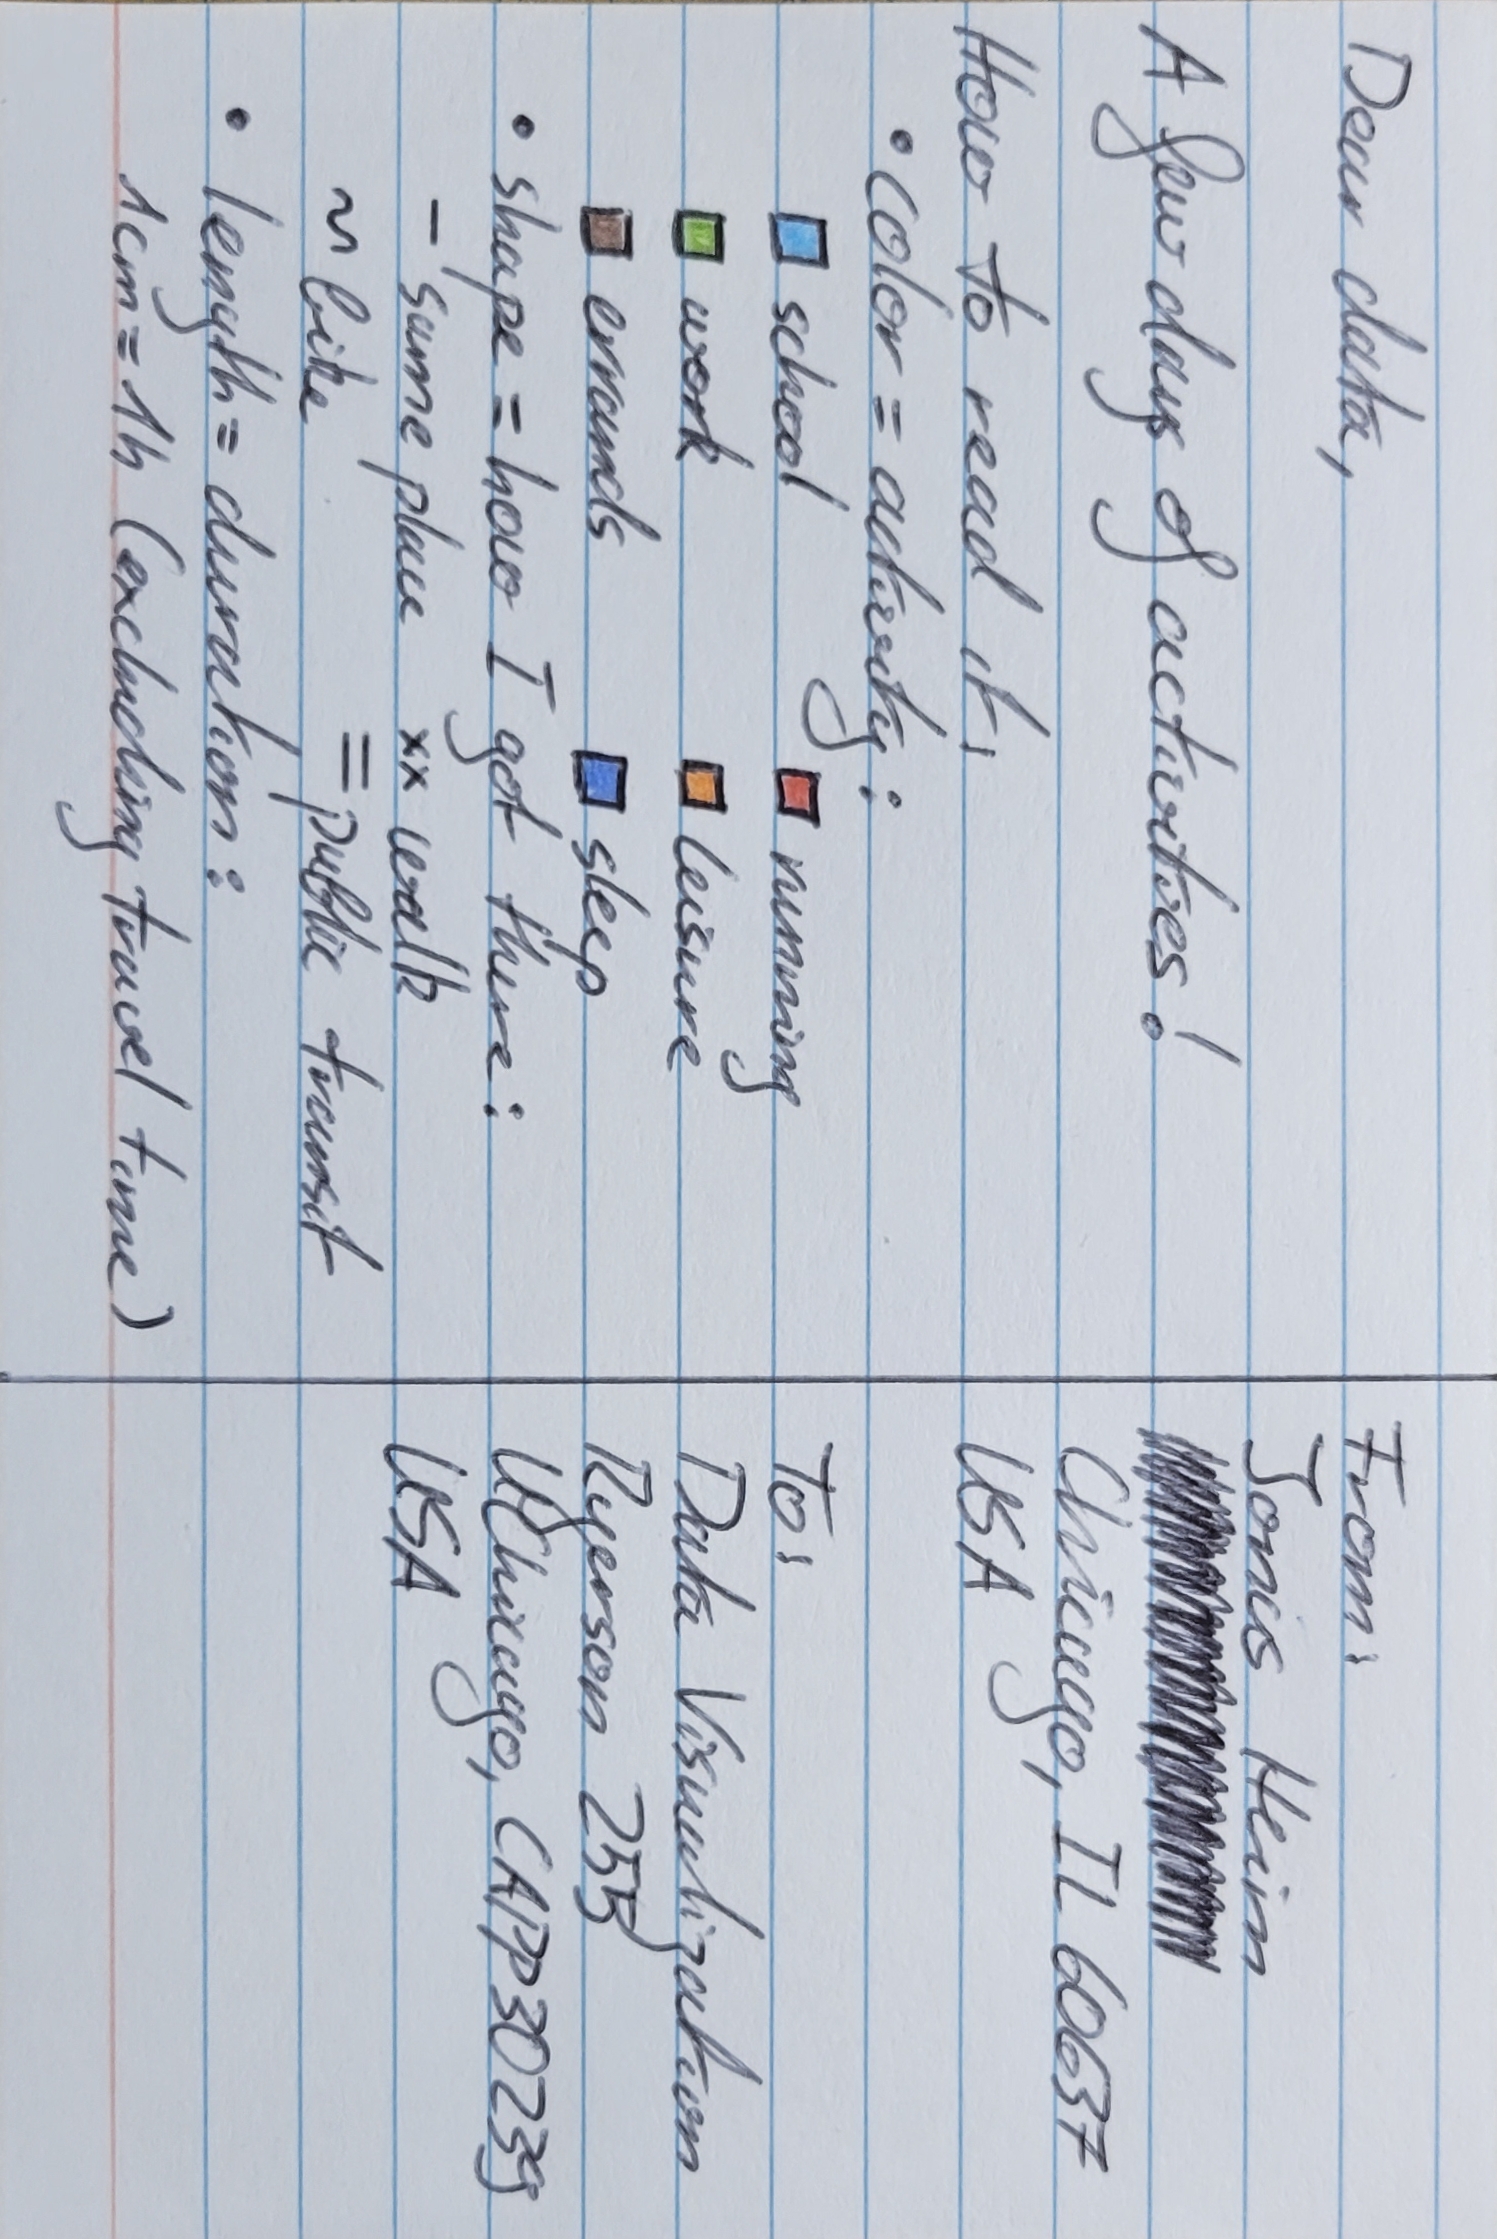 Dear data,
A few days of activities!
How to read it:
• color = activity:
school
running
work
leisure
errands
sleep
• shape = how I got there:
– same place
xx walk
~ bike
= public transit
• length = duration:
1cm = 1h (excluding travel time)
From:
Jonas Heim
Chicago, IL 60637
USA
To:
Data Visualization
Ryerson 255
UChicago, CAPP30239
USA